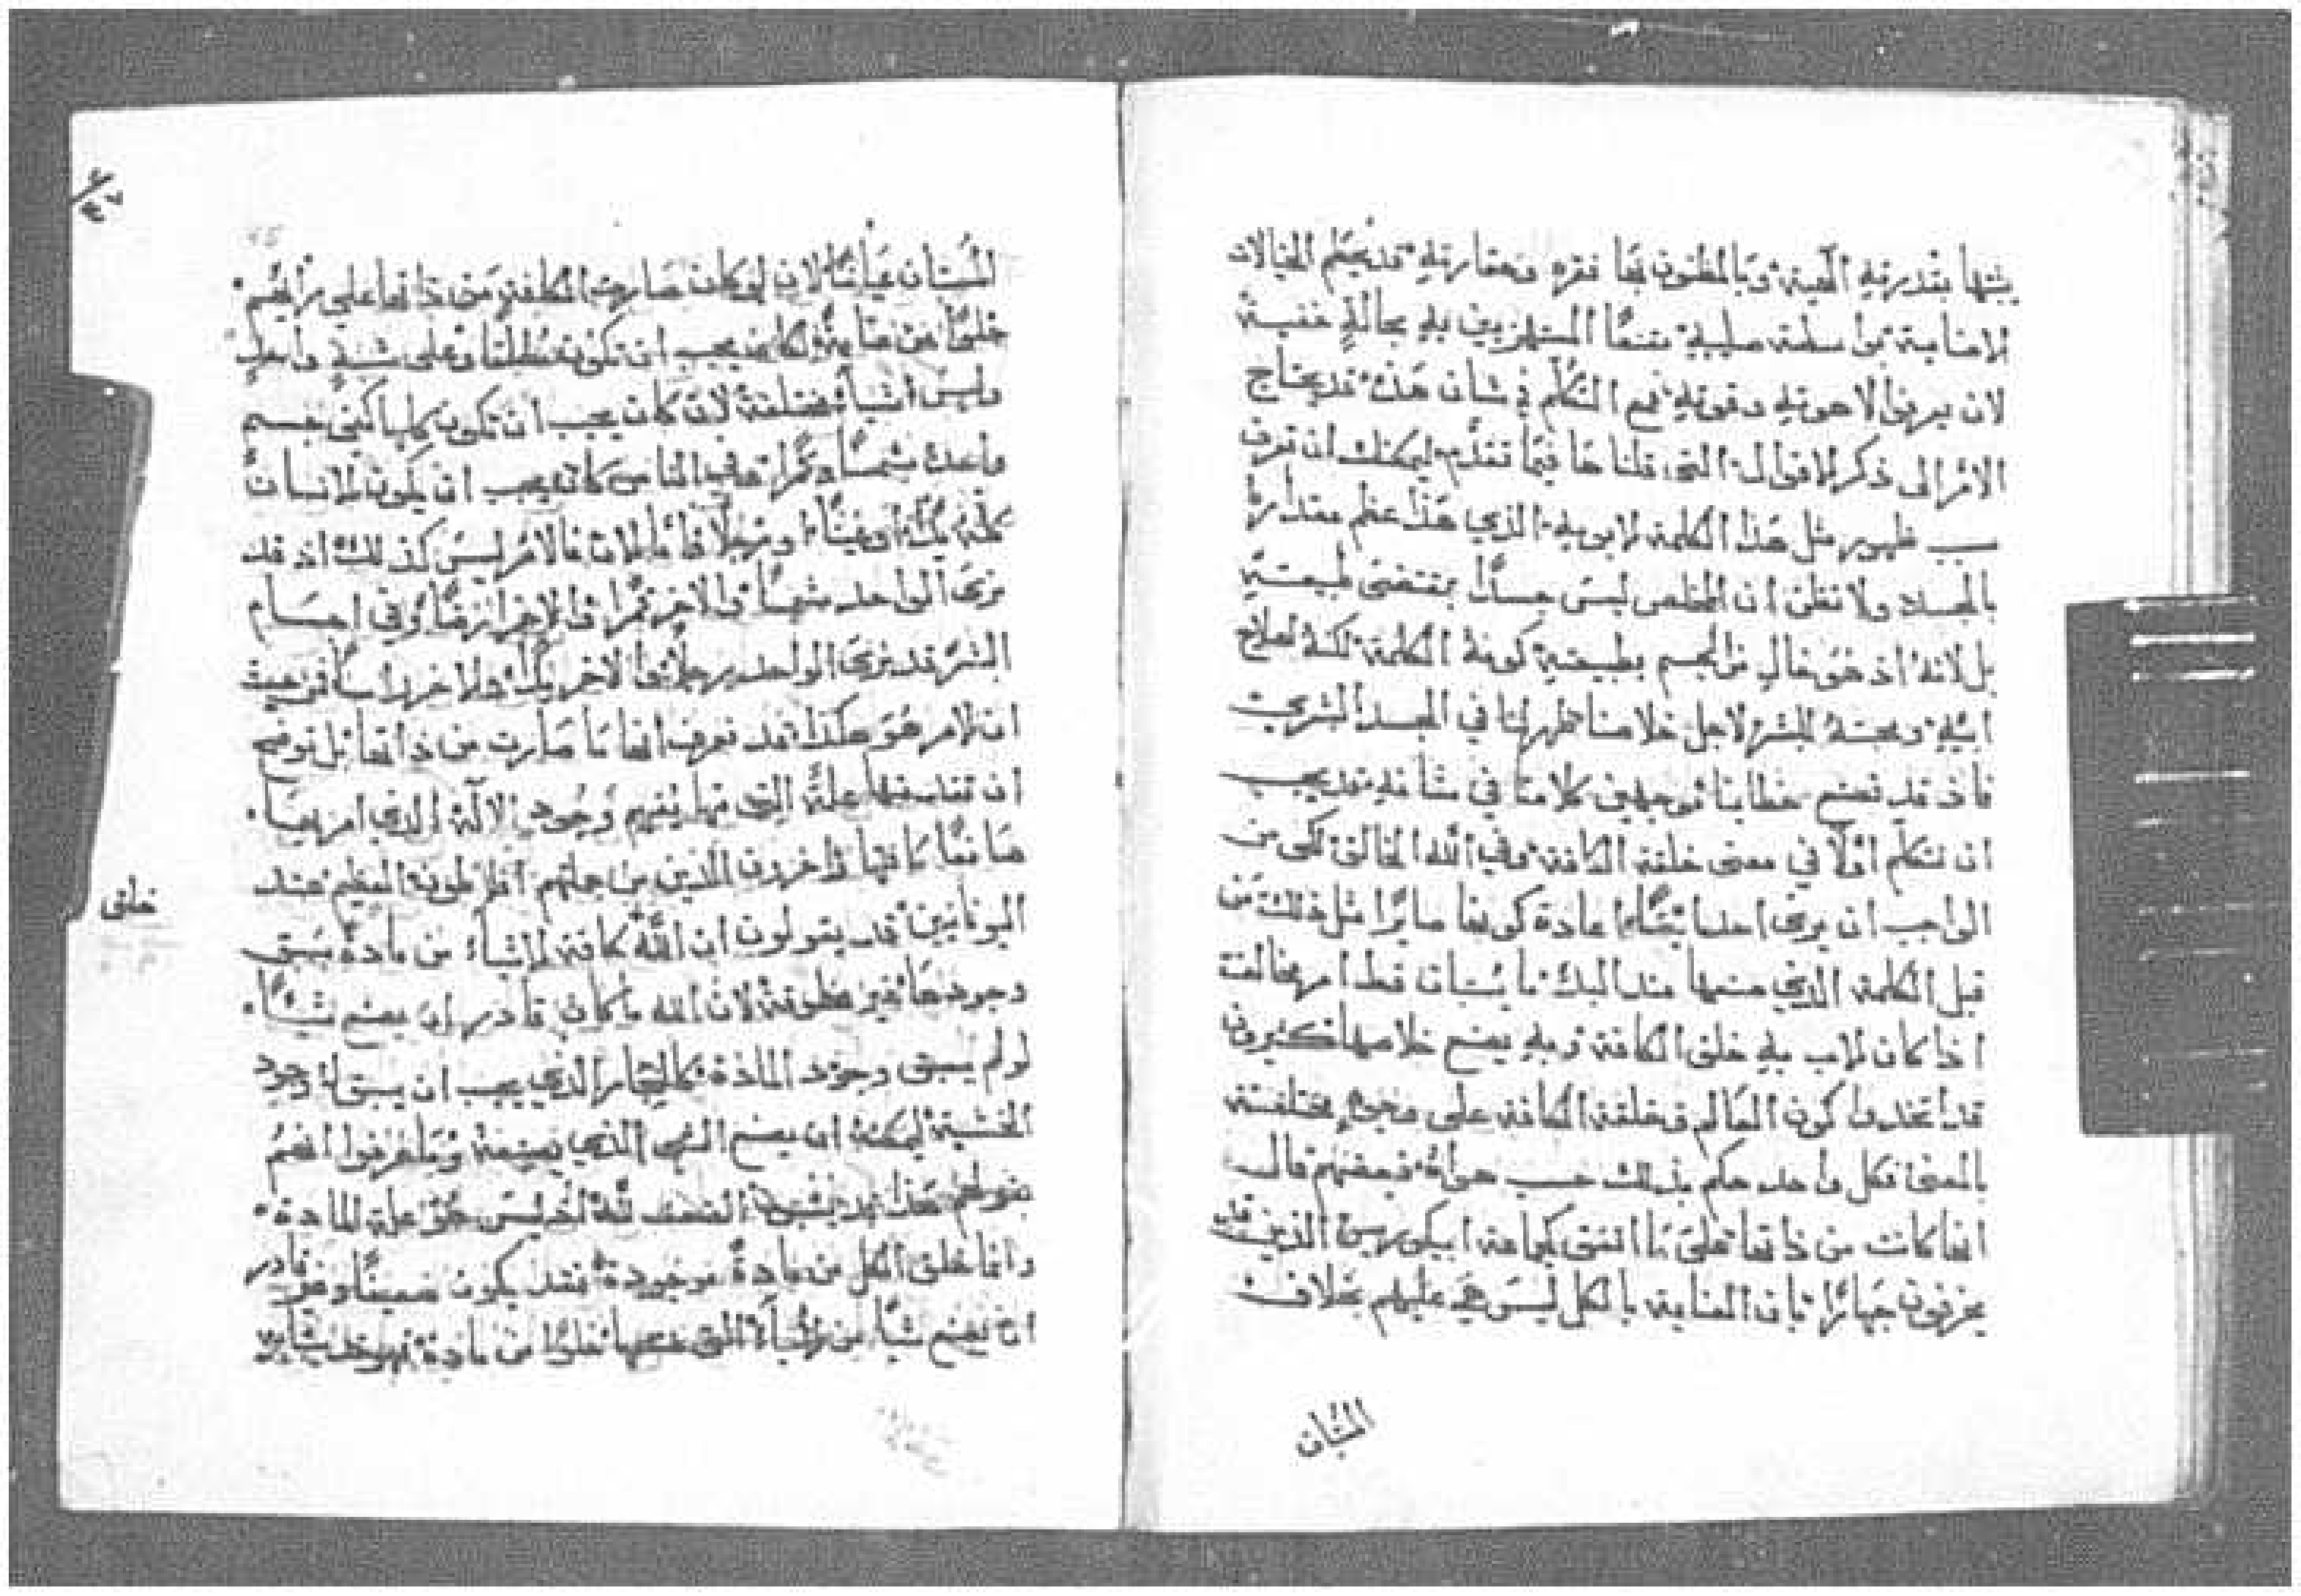 يثبتها بقدرته الهينة وبالمظنون بها فقره وحقارته قد يحطم الخيالات
الاصنامية من سلمة صليبه مقنعًا المستهزيين به بحالةٍ خفية
لان يعرفوا لاهوته وقوته فمع التكلم في شان هذه قد يحتاج
الامر الى ذكر الاقوال التي قلناها فيما تقدم ليمكنك ان تعرف
سبب ظهور مثل هذا الكلمة لابويه الذي هذا عظم مقداره
بالجسد ولا تظن ان المخلص ليس جسدًا بمقتضى طبيعته
بل لانه اذ هو خالٍ من الجسم بطبيعته كونه الكلمة لكنه لصلاح
ابيه ومحبته للبشر لاجل خلاصنا ظهر لنا في الجسد البشري
فاذ قد نصنع خطابنا موجهين كلامنا في شانه قد يجب
ان نتكلم اولًا في معنى خلقة الكافة وفي الله الخالق لكي من
الواجب ان يرى احدنا ايضًا اعادة كونها صايرًا مثل ذلك من
قبل الكلمة الذي صنعها منذ البدء ما يستبان قط امر مخالفة
اذا كان الاب به خلق الكافة وبه يصنع خلاصها كثيرون
قد اتخذوا كون العالم وخلقة الكافة على وجوهٍ مختلفة
بالمعنى فكل واحد حكم بذلك حسب هواه فبعضهم قال
انها كانت من ذاتها على ما اتفق كجماعة ابيكورس الذين
يحرفون جهارًا بان العناية بالكل ليس هي عليهم بخلاف
المستبان
المستبان عيانًا لان لو كان صارت الكافة من ذاتها على رأيهم
خلوًا من عناية لكان يجب ان تكون مطلقًا وعلى شبهٍ واحدٍ
وليس اشياء مختلفة لان كان يجب ان تكون كلها كفي جسم
واحد شمسًا وقمرًا وفي الناس كان يجب ان يكون الانسان
كله يدًا او عينًا او رجلًا فالامر ليس كذلك اذ قد
نرى الواحد شمسًا والاخر قمرًا والاخر ارضًا وفي اجسام
البشر قد نرى الواحد رجلًا والاخر يدًا والاخر راسًا فمن حيث
ان الامر هو هكذا قد نعرف انها ما صارت من ذاتها بل توضح
ان تقدمتها علة التي منها يفهم وجود الاله الذي
صانعًا كافتها واخرون الذين من جملتهم افلاطون العظيم عند
اليونانيين قد يقولون ان الله كافة الاشياء من مادة سبق
وجودها غير مخلوقة لان الله ما كان قادر ان يصنع شيًا
لو لم يسبق وجود المادة كالنجار الذي يجب ان يسبق له وجود
الخشبة ليمكنه ان يصنع الشي الذي يصنعه وما عرفوا انهم
بقولهم هذا قد ينسبون الضعف لله اذ ليس هو علة المادة
وانما خلق الكل من مادة موجودة فقد يكون ضعيفًا وغير قادر
ان يصنع شيًا من الاشياء التي صنعها خلوًا من مادة
خلق